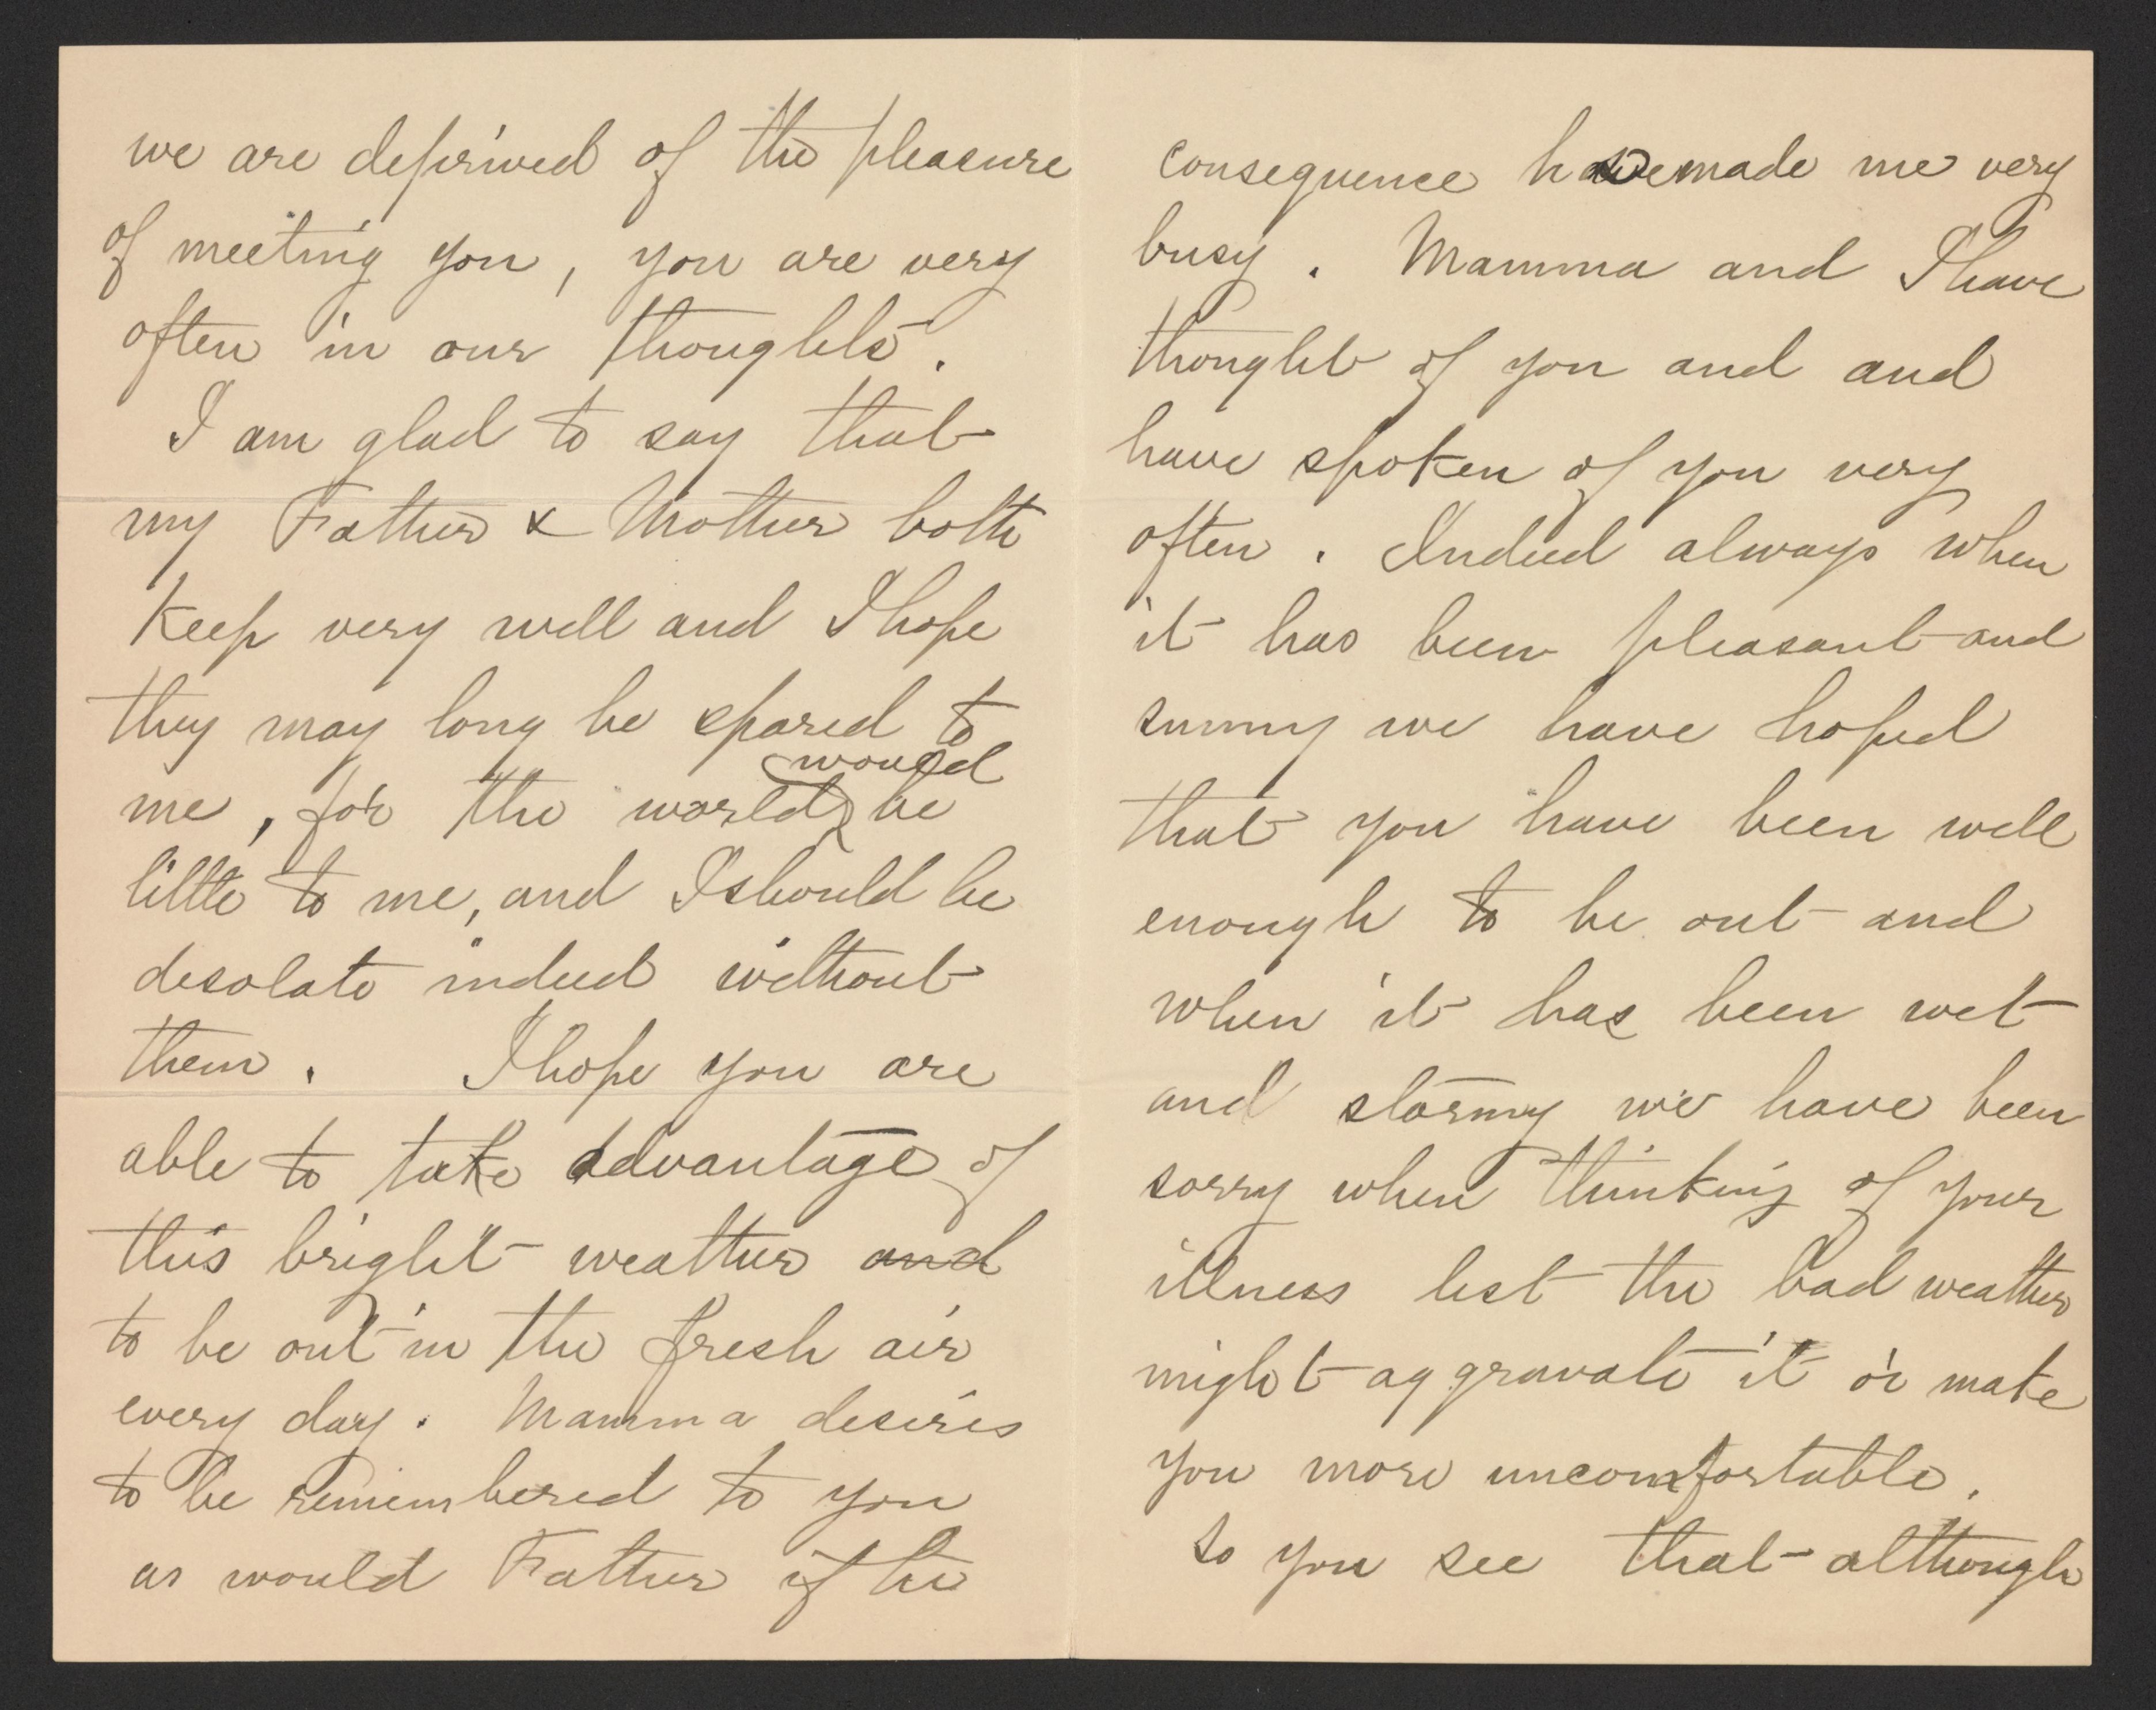 we are deprived of the pleasure
of meeting you, you are very
often in our thoughts.
I am glad to say that
my Father & Mother both
keep very well and I hope
they may long be spared to
would
me, for the world be
little to me, and I should be
desolate indeed without
them. I hope you are
able to take advantage of
this bright weather and
to be out in the fresh air
every day. Mamma desires
to be remembered to you
as would Father if he
consequence have made me very
busy. Mamma and I have
thought of you and and
have spoken of you very
often. Indeed always when
it has been pleasant and
sunny we have hoped
that you have been well
enough to be out and
when it has been wet
and stormy we have been
sorry when thinking of your
illness lest the bad weather
might aggravate it or make
you more uncomfortable.
So you see that although